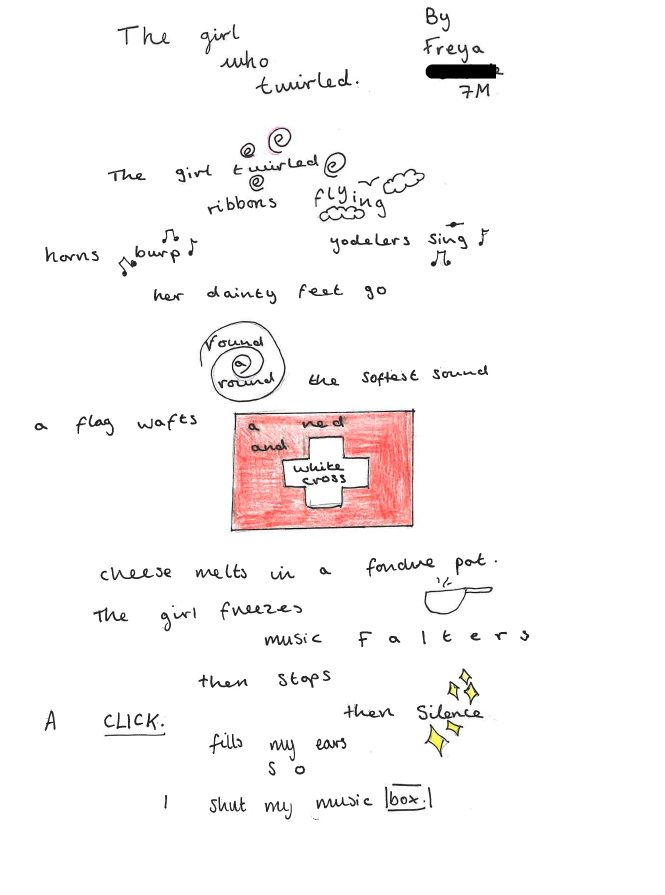 The girl
who
twirled.
By
Freya
7M
The girl twirled
ribbons flying
horns burp
yodelers sing
her dainty feet go
round
a
round the softest sound
a flag wafts
a red
and
white
cross
cheese melts in a fondue pot.
The girl freezes
music Falters
then stops
then Silence
A CLICK.
fills my ears
S O
I shut my music box.